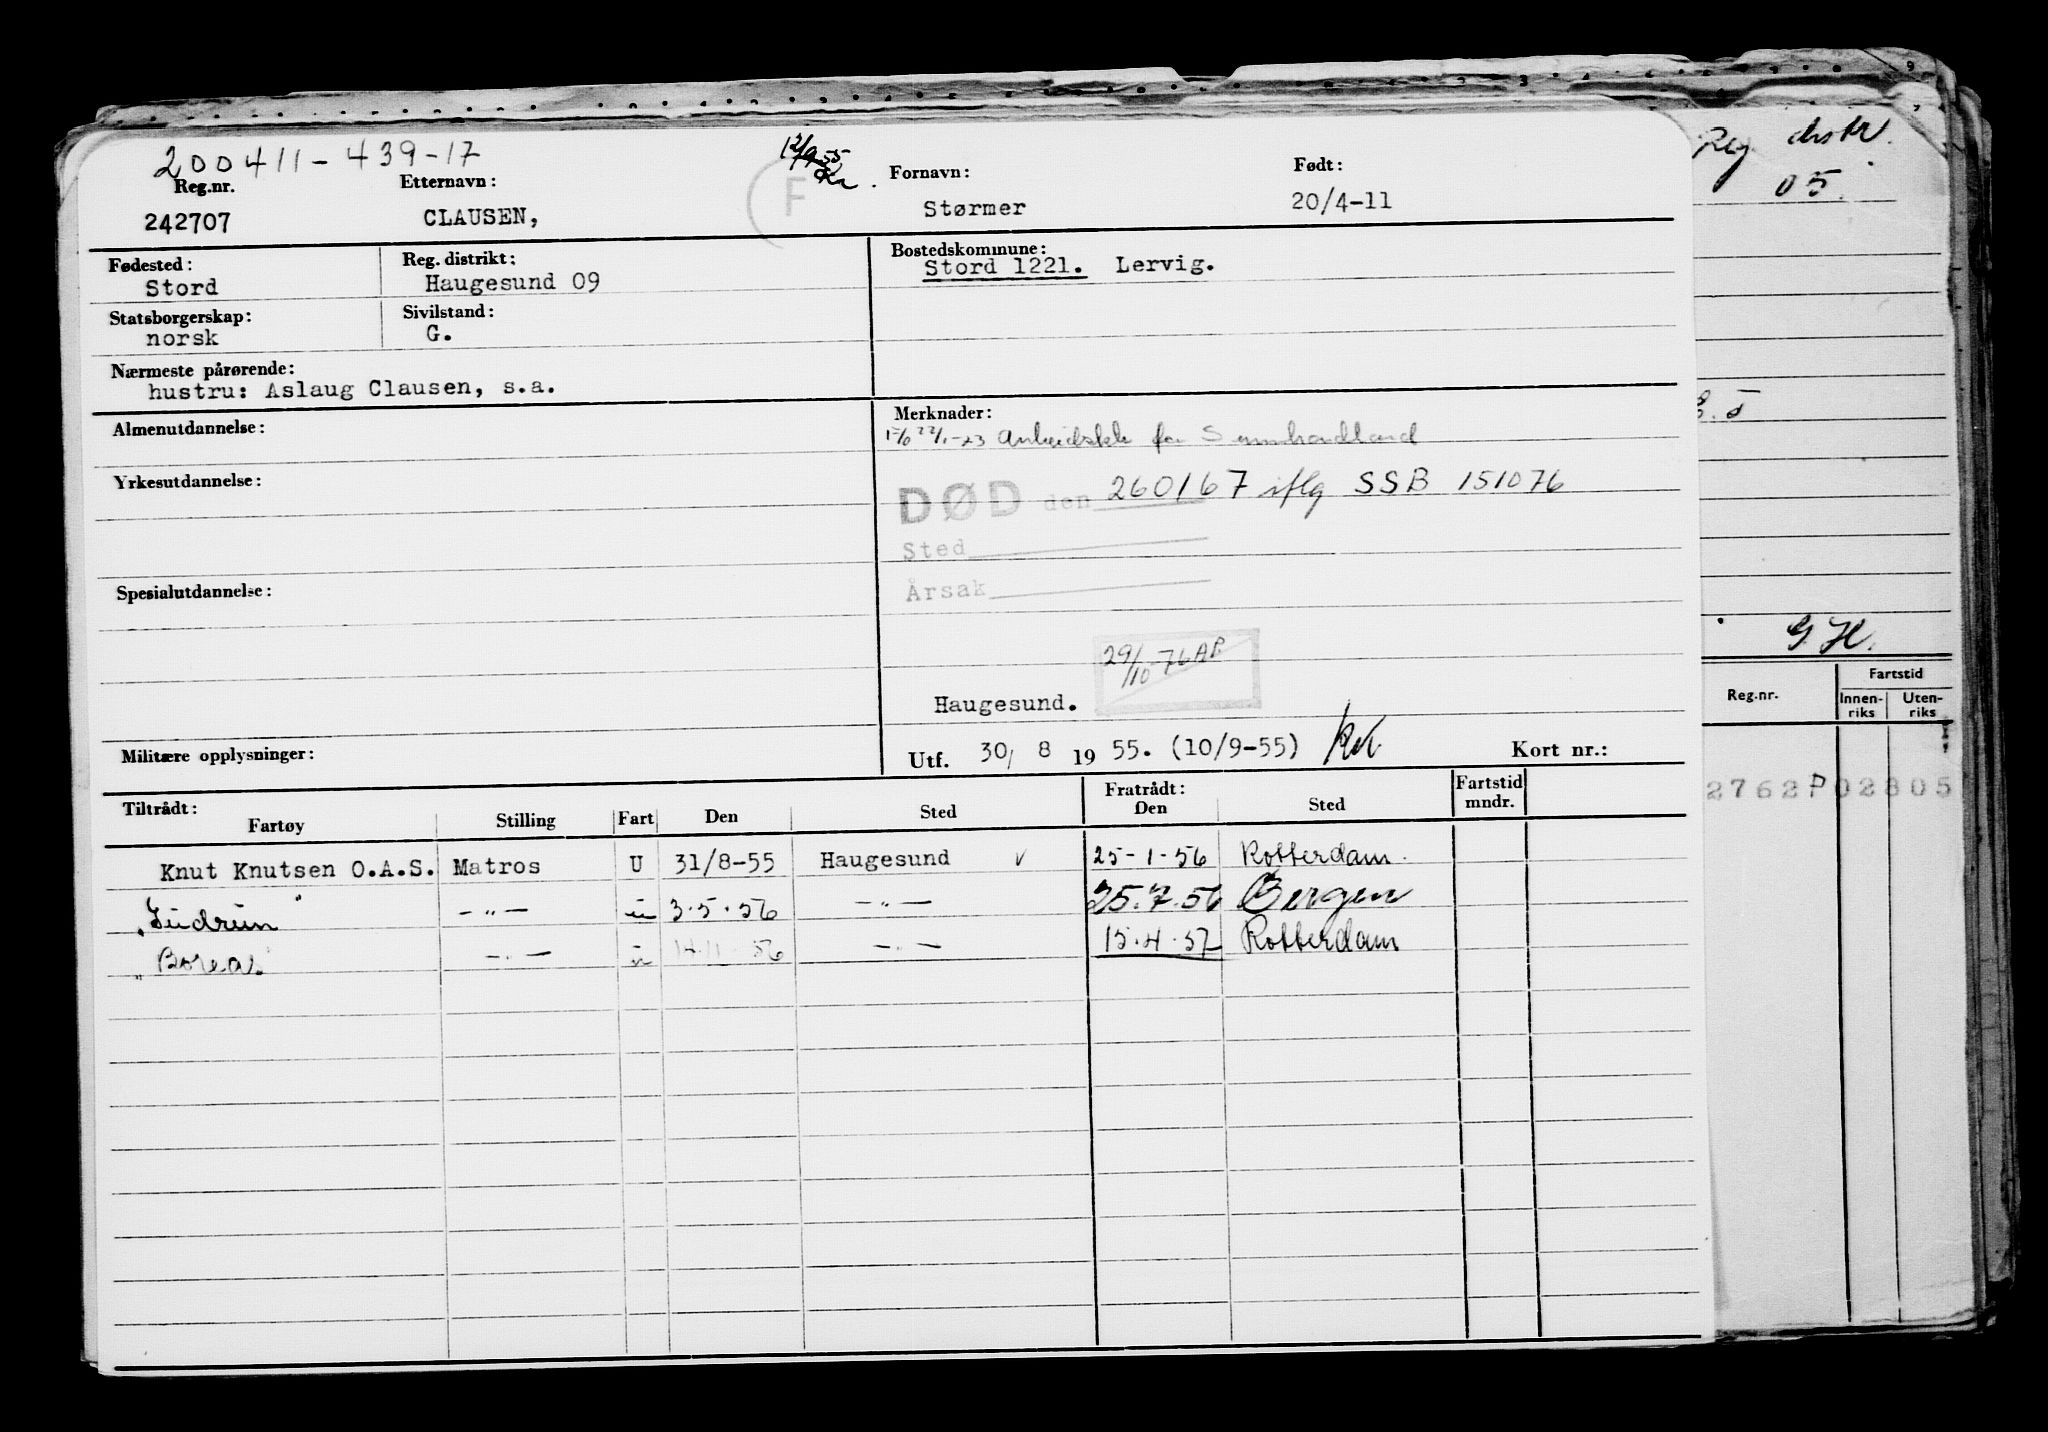 200411-439-17
12/9 55
Reg.nr. Etternavn: F Fornavn: Født:
242707 CLAUSEN, Størmer 20/4-11
Fødested: Reg. distrikt: Bostedskommune:
Stord Haugesund 09 Stord 1221. Lervig.
Statsborgerskap: Sivilstand:
norsk G.
Nærmeste pårørende:
hustru: Aslaug Clausen, s.a.
Almenutdannelse: Merknader:
for Sunnhordland
Yrkesutdannelse:
DØD den 260167 iflg SSB 151076
Sted
Årsak
Spesialutdannelse:
29/10-76 AP.
Haugesund.
Militære opplysninger: Utf. 30/ 8 19 55. (10/9-55) Kort nr.:
Tiltrådt: Fratrådt: Fartstid
Fartøy Stilling Fart Den Sted Den Sted mndr.
Knut Knutsen O.A.S. Matros U 31/8-55 Haugesund v 25-1-56 Rotterdam.
"Gudrun" -"- u 3.5.56 -"- 25.7.56 Bergen
"Boreas -"- u 14.11.56 -"- 15.4.57 Rotterdam
Reg. distr.
05.
G H.
Reg.nr. Fartstid
Innen-riks Uten-riks
2762P02805